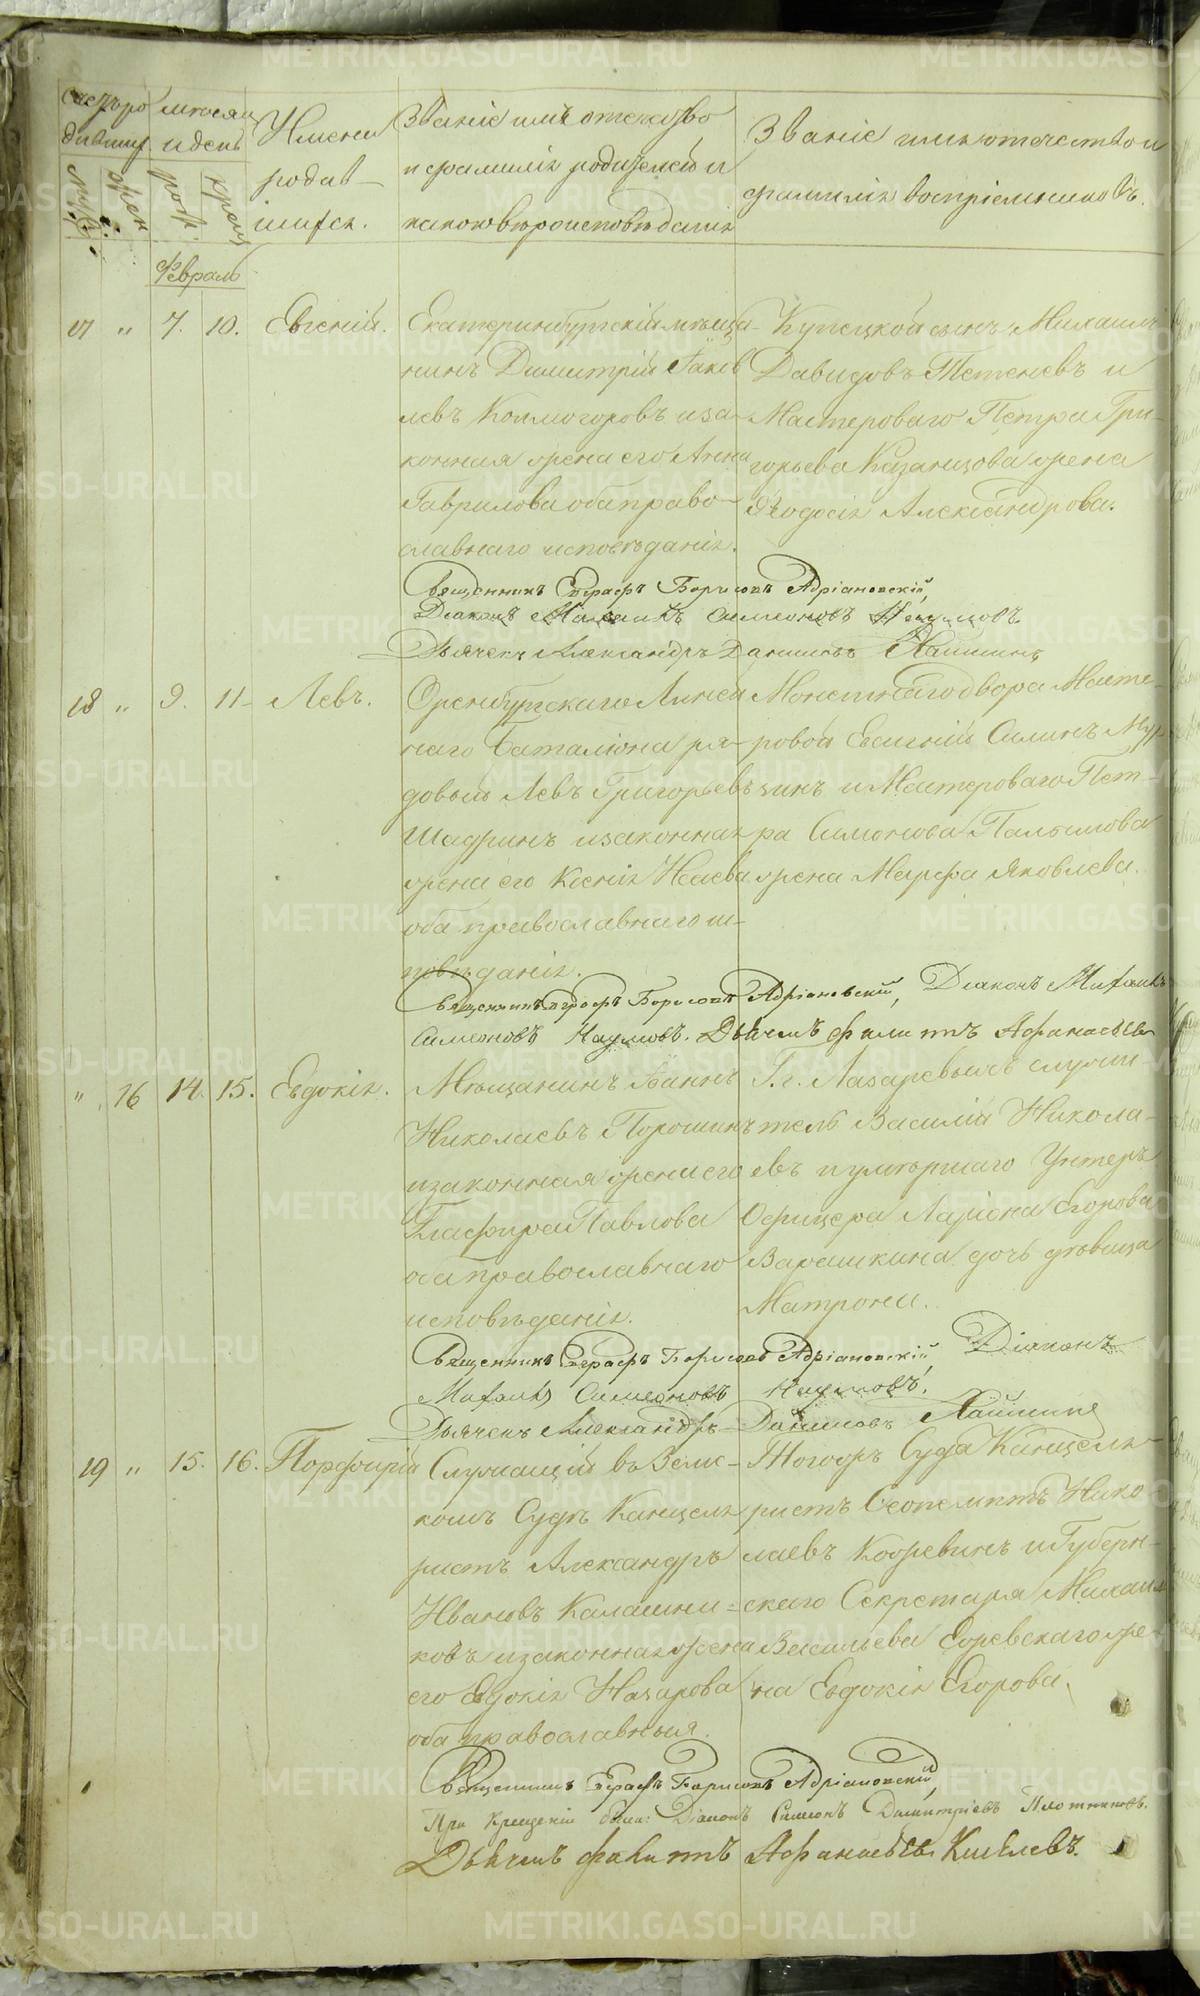 METRIKI.GASO-URAL.RU
Счетъ ро
дившихся
муж.
жен
мѣсяцъ
и день
рож.
крещ
Имена
родив-
шихся.
Званіе имя отечество
и фамилія родителей и
какого вѣроисповѣданія
Званіе имя отечество и
фамилія воспріемниковъ.
Февраль
17 " 7. 10. Евгеній.
Екатеринбургскій мѣща-
нинъ Димитрій Яков
левъ Колмогоровъ иза-
конная жена его Анна
Гаврилова оба право-
славнаго исповѣданія.
Купецкой сынъ Михаилъ
Давидовъ Тетеневъ и
Мастероваго Петра Гри-
горьева Казанцова жена
Ѳеодосія Александрова.
Священникъ Евграфъ Борисовъ Адріановскій,
Діаконъ Михаилъ Симеоновъ Наумовъ
Дьячекъ Александръ Даниловъ
18 " 9. 11- Левъ.
Оренбургскаго Линей
наго Баталіона ря-
довый Левъ Григорьевъ
Шадринъ изаконная
жена его Ксенія Исаева
оба православнаго ис-
повѣданія.
Монетнаго двора Масте-
ровой Евгеній Силинъ Мур
зинъ и Мастероваго Пет-
ра Симонова Пальшова
жена Марфа Яковлева.
Священникъ Евграфъ Борисовъ Адріановскій, Діаконъ Михаилъ
Симеоновъ Наумовъ. Дьячекъ Филитъ Афанасьевъ
" 16 14. 15. Евдокія.
Мѣщанинъ Іоаннъ
Николаевъ Порошинъ
изаконная жена его
Глафира Павлова
оба православнаго
исповѣданія.
Г. г. Лазаревыхъ служи
тель Василій Никола-
евъ и умершаго Унтеръ
Офицера Ларіона Егорова
Варашкина дочь дѣвица
Матрона.
Священникъ Евграфъ Борисовъ Адріановскій, Діаконъ
Михаилъ Симеоновъ Наумовъ.
Дьячекъ Александръ Даниловъ
19 " 15. 16. Порфирій
Служащій въ Земс-
комъ Судѣ Канцеля
ристъ Александръ
Ивановъ Калашни-
ковъ изаконная жена
его Евдокія Назарова
оба православныя.
Тогожъ Суда Канцеля-
ристъ Нико
лаевъ и Губерн-
скаго Секретаря Михаила
Васильева же-
на Евдокія Егорова.
Священникъ Евграфъ Борисовъ Адріановскій,
При Крещеніи были: Діаконъ Симеонъ Димитріевъ Плотниковъ.
Дьячекъ Филитъ Афанасьевъ Киселевъ.